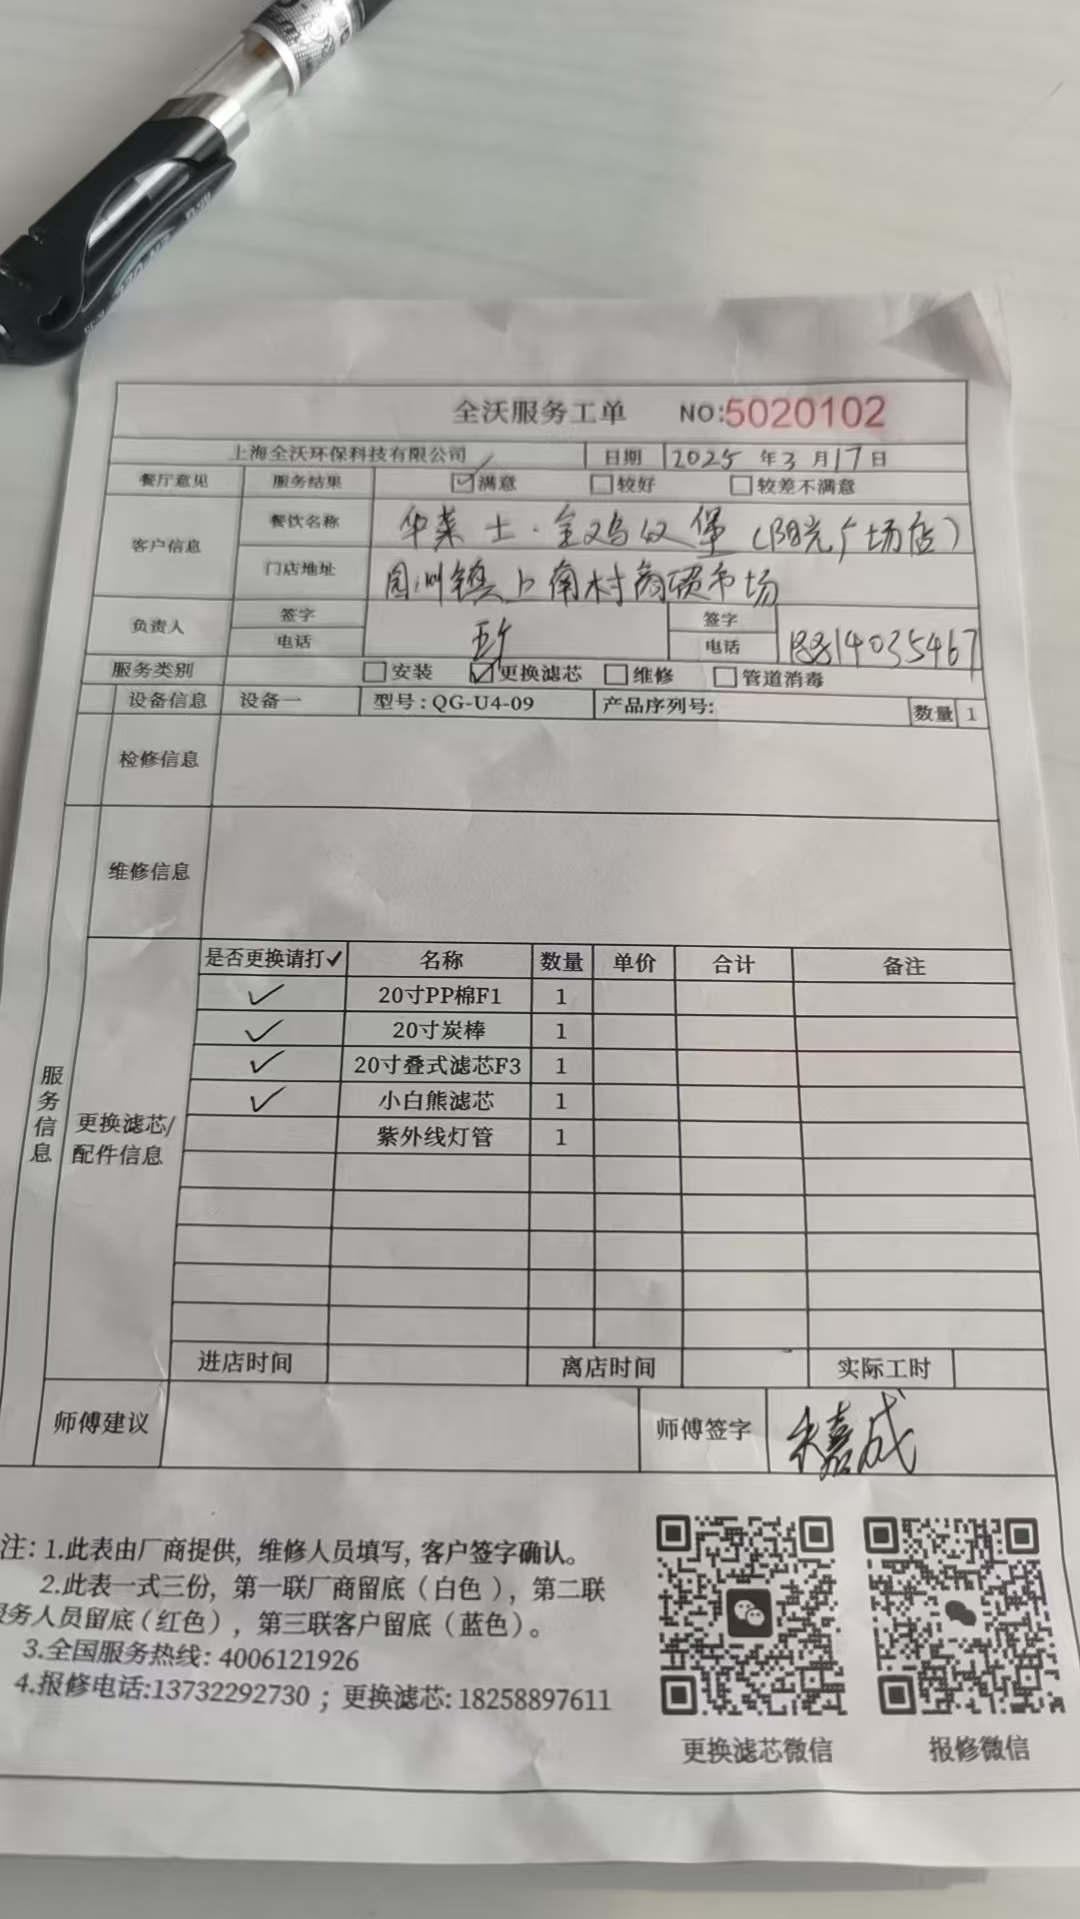 全沃服务工单 NO:5020102
上海全沃环保科技有限公司 日期 2025 年 3 月 17 日
餐厅意见 服务结果 ☑满意 ☐较好 ☐较差不满意
客户信息 餐饮名称 华莱士·全鸡汉堡(阳光广场店)
门店地址 园洲镇上南村商贸市场
负责人 签字 签字
电话 电话 18814035467
服务类别 ☐安装 ☑更换滤芯 ☐维修 ☐管道消毒
设备信息 设备一 型号:QG-U4-09 产品序列号: 数量 1
检修信息
维修信息
服务信息
更换滤芯/配件信息
是否更换请打✓ 名称 数量 单价 合计 备注
✓ 20寸PP棉F1 1
✓ 20寸炭棒 1
✓ 20寸叠式滤芯F3 1
✓ 小白熊滤芯 1
紫外线灯管 1
进店时间 离店时间 实际工时
师傅建议 师傅签字 嘉成
注: 1.此表由厂商提供, 维修人员填写, 客户签字确认。
2.此表一式三份, 第一联厂商留底(白色), 第二联
服务人员留底(红色), 第三联客户留底(蓝色)。
3.全国服务热线: 4006121926
4.报修电话:13732292730 ; 更换滤芯: 18258897611
更换滤芯微信 报修微信